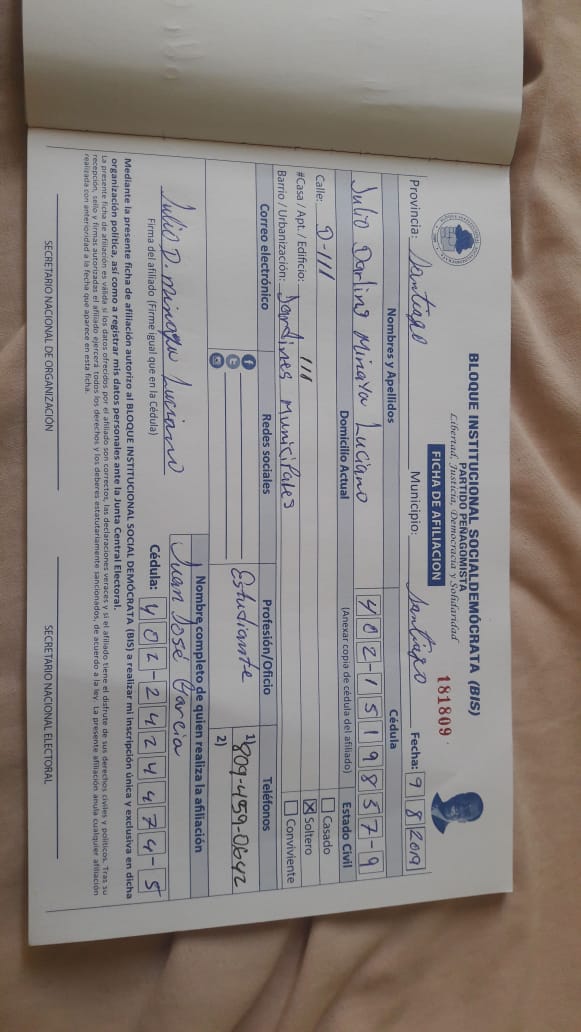 BLOQUE INSTITUCIONAL SOCIALDEMÓCRATA (BIS)
PARTIDO PEÑAGOMISTA
Libertad, Justicia, Democracia y Solidaridad
181809
FICHA DE AFILIACION
Provincia: Santiago Municipio: Santiago Fecha: 9 8 2019
Nombres y Apellidos Cédula
Julio Darling Minaya Luciano 402-1519857-9
Domicilio Actual (Anexar copia de cédula del afiliado) Estado Civil
Calle: D-111 Casado
#Casa / Apt. / Edificio: 111 Soltero
Barrio / Urbanización: Jardines Municipales Conviviente
Correo electrónico Redes sociales Profesión/Oficio Teléfonos
Estudiante 1) 809-459-0642
2)
Nombre completo de quien realiza la afiliación
Juan José Garcia
Julio D. minaya Luciano
Firma del afiliado (Firme igual que en la Cédula)
Cédula: 402-2424474-5
Mediante la presente ficha de afiliación autorizo al BLOQUE INSTITUCIONAL SOCIAL DEMÓCRATA (BIS) a realizar mi inscripción única y exclusiva en dicha
organización política, así como a registrar mis datos personales ante la Junta Central Electoral.
La presente ficha de afiliación es válida si los datos ofrecidos por el afiliado son correctos, las declaraciones veraces y si el afiliado tiene el disfrute de sus derechos civiles y políticos. Tras su
recepción, sello y firmas autorizadas el afiliado ejercerá todos los derechos y los deberes estatutariamente sancionados, de acuerdo a la ley. La presente afiliación anula cualquier afiliación
realizada con anterioridad a la fecha que aparece en esta ficha.
SECRETARIO NACIONAL DE ORGANIZACIÓN SECRETARIO NACIONAL ELECTORAL